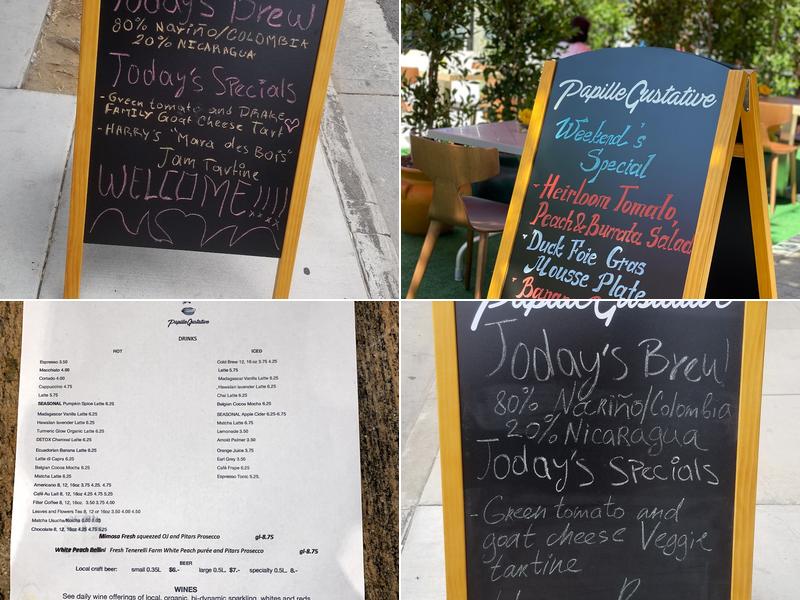 Today's Brew
80% Nariño/COLOMBIA
20% NICARAGUA
Today's Specials
- Green tomato and DRAKE
FAMILY Goat Cheese Tart
- HARRY'S "Mara des Bois"
Jam Tartine
WELCOME!!!!
xxxx
Papille Gustative
Weekend's
Special
- Heirloom Tomato,
Peach & Burrata Salad
- Duck Foie Gras
Mousse Plate
PapilleGustative
DRINKS
HOT
Espresso 3.50
Macchiato 4.00
Cortado 4.00
Cappuccino 4.75
Latte 5.75
SEASONAL Pumpkin Spice Latte 6.25
Madagascar Vanilla Latte 6.25
Hawaiian lavender Latte 6.25
Turmeric Glow Organic Latte 6.25
DETOX Charcoal Latte 6.25
Ecuadorian Banana Latte 6.25
Latte di Capra 6.25
Belgian Cocoa Mocha 6.25
Matcha Latte 6.25
Americano 8, 12, 16oz 3.75, 4.25 4.75
Café Au Lait 8, 12, 16oz 4.25 4.75 5.25
Filter Coffee 8, 12, 16oz. 3.50 3.75 4.00
Leaves and Flowers Tea 8, 12 or 16oz 3.50 4.00 4.50
Matcha Usucha/Koicha 6.00 8.00
Chocolate 8, 12, 16oz 4.25 4.75 5.25
ICED
Cold Brew 12, 16 oz 3.75 4.25
Latte 5.75
Madagascar Vanilla Latte 6.25
Hawaiian lavender Latte 6.25
Chai Latte 6.25
Belgian Cocoa Mocha 6.25
SEASONAL Apple Cider 6.25-6.75
Matcha Latte 6.75
Lemonade 3.50
Arnold Palmer 3.50
Orange Juice 3.75
Earl Grey 3.50
Café Frape 6.25
Espresso Tonic 5.25.
Mimosa Fresh squeezed OJ and Pitars Prosecco gl-8.75
White Peach Bellini Fresh Tenerelli Farm White Peach purée and Pitars Prosecco gl-8.75
BEER
Local craft beer: small 0.35L $6.- large 0.5L $7.- specialty 0.5L 8.-
WINES
See daily wine offerings of local, organic, bi-dynamic sparkling, whites and reds
Papille Gustative
Today's Brew
80% Nariño/Colombia
20% Nicaragua
Today's Specials
- Green tomato and
goat cheese Veggie
tartine